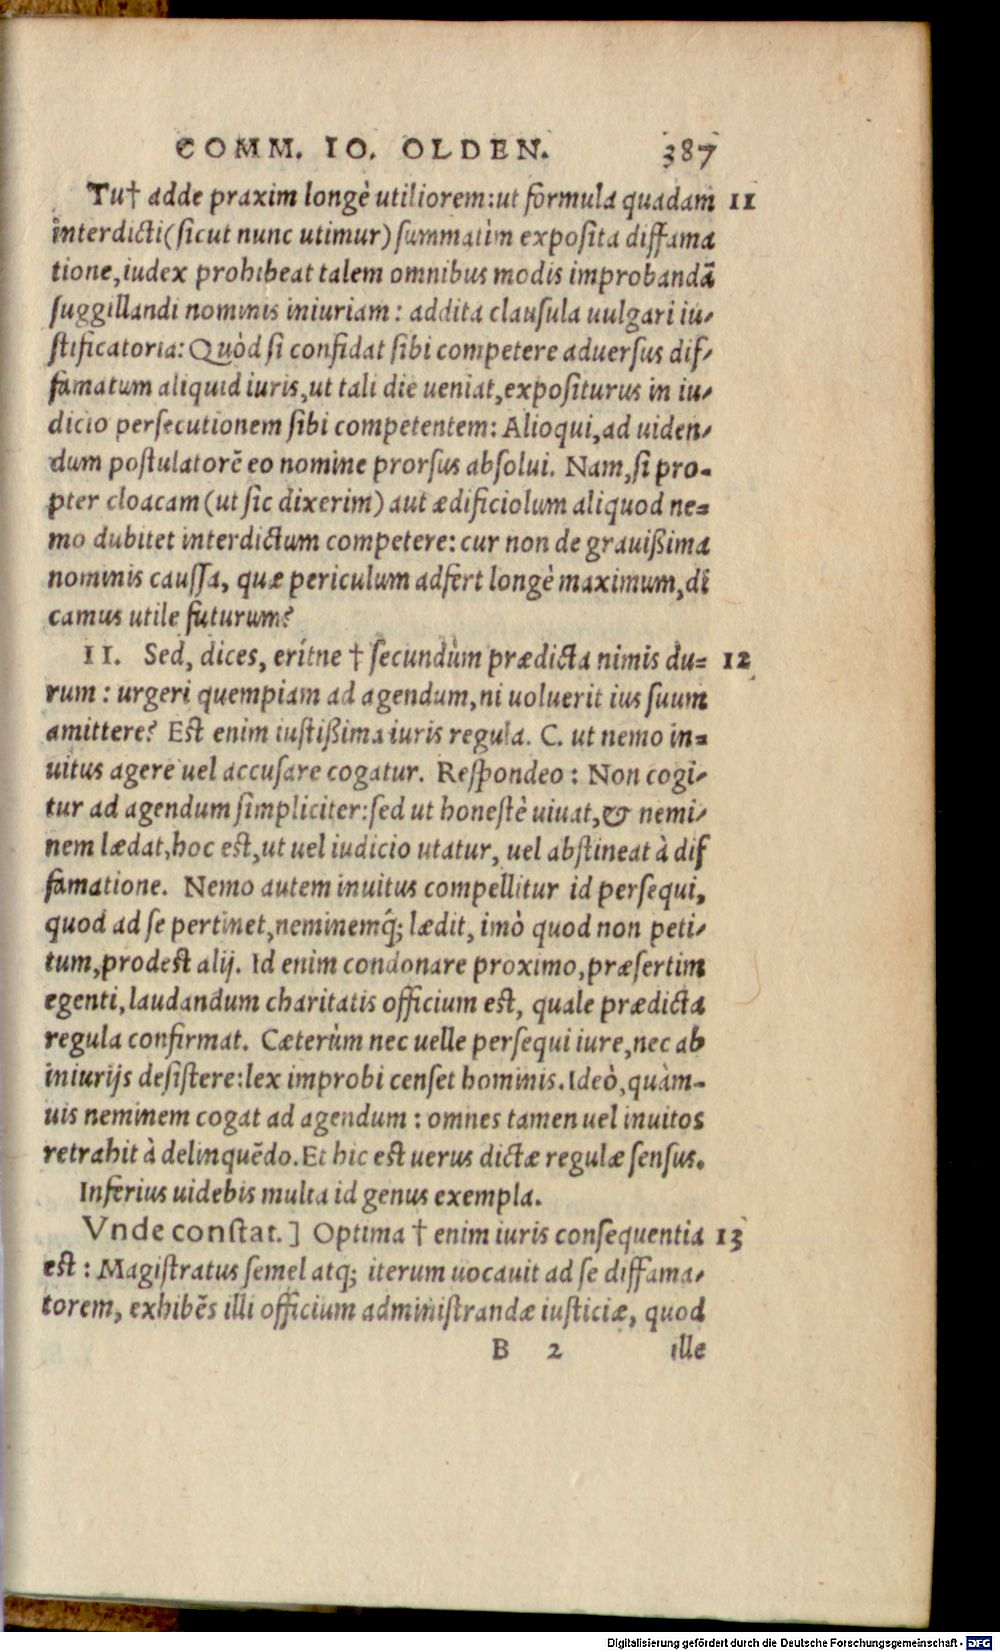 COMM. IO. OLDEN. 387
Tu† adde praxim longè utiliorem: ut formula quadam 11
interdicti (sicut nunc utimur) summatìm exposita diffama
tione, iudex prohibeat talem omnibus modis improbandã
suggillandi nominis iniuriam: addita clausula uulgari iu-
stificatoria: Quòd si confidat sibi competere aduersus dif-
famatum aliquid iuris, ut tali die ueniat, expositurus in iu-
dicio persecutionem sibi competentem: Alioqui, ad uiden-
dum postulatorẽ eo nomine prorsus absolui. Nam, si pro-
pter cloacam (ut sic dixerim) aut ædificiolum aliquod ne-
mo dubitet interdictum competere: cur non de grauißima
nominis caussa, quæ periculum adfert longè maximum, di
camus utile futurum?
II. Sed, dices, erítne † secundùm prædicta nimis du- 12
rum: urgeri quempiam ad agendum, ni uoluerit ius suum
amittere? Est enim iustißima iuris regula. C. ut nemo in-
uitus agere uel accusare cogatur. Respondeo: Non cogi-
tur ad agendum simpliciter: sed ut honestè uiuat, & nemi-
nem lædat, hoc est, ut uel iudicio utatur, uel abstineat à dif
famatione. Nemo autem inuitus compellitur id persequi,
quod ad se pertinet, neminemq́; lædit, imò quod non peti-
tum, prodest alij. Id enim condonare proximo, præsertim
egenti, laudandum charitatis officium est, quale prædicta
regula confirmat. Cæterùm nec uelle persequi iure, nec ab
iniurijs desistere: lex improbi censet hominis. Ideò, quàm-
uis neminem cogat ad agendum: omnes tamen uel inuitos
retrahit à delinquẽdo. Et hic est uerus dictæ regulæ sensus.
Inferius uidebis multa id genus exempla.
Vnde constat.] Optima † enim iuris consequentia 13
est: Magistratus semel atq; iterum uocauit ad se diffama-
torem, exhibẽs illi officium administrandæ iusticiæ, quod
B 2 ille
Digitalisierung gefördert durch die Deutsche Forschungsgemeinschaft - DFG